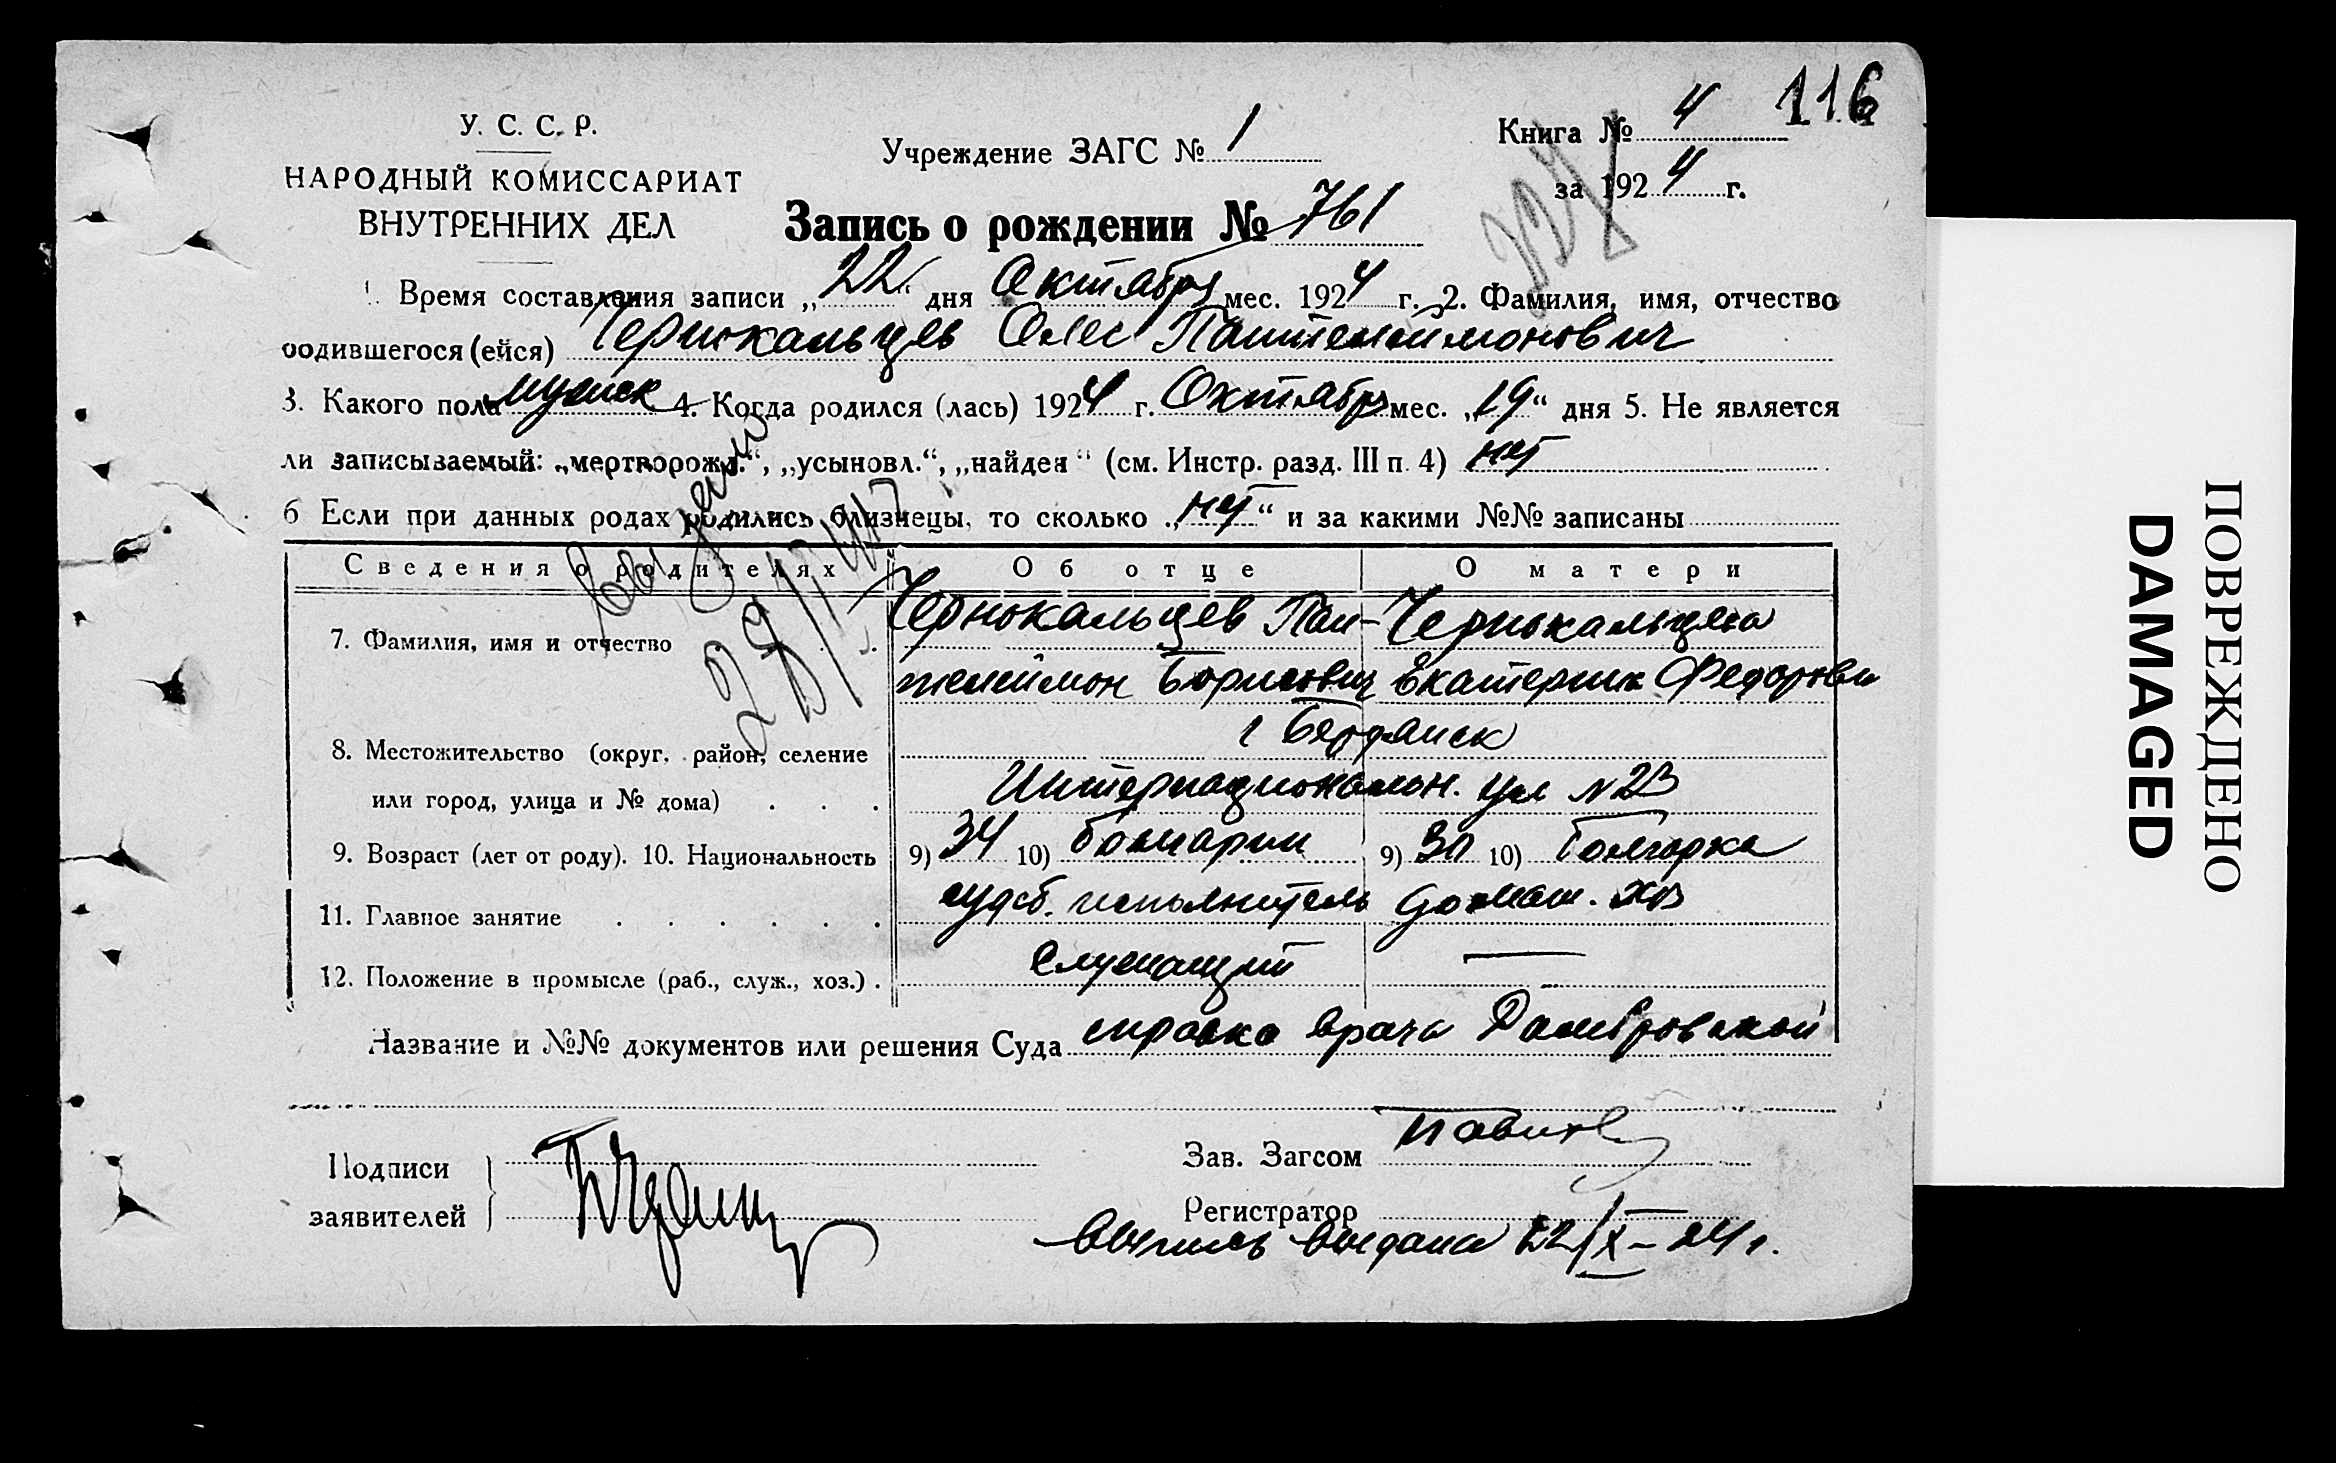 116
У. С. С. Р.
НАРОДНЫЙ КОМИССАРИАТ
ВНУТРЕННИХ ДЕЛ
Учреждение ЗАГС № 1
Книга № 4
за 1924 г.
Запись о рождении № 761
1. Время составления записи „22“ дня Октября мес. 1924 г. 2. Фамилия, имя, отчество
родившегося (ейся) Чернокальцев Олег Пантелеймонович
3. Какого пола мужск 4. Когда родился (лась) 1924 г. Октября мес. „19“ дня 5. Не является
ли записываемый: „мертворожд.“, „усыновл.“, „найден“ (см. Инстр. разд. III п. 4) нет
6 Если при данных родах родились близнецы, то сколько „нет“ и за какими №№ записаны
Сведения о родителях Об отце О матери
7. Фамилия, имя и отчество Чернокальцев Пан- Чернокальцева
телеймон Борисович Екатерина Федоровн
8. Местожительство (округ, район, селение г Бердянск
или город, улица и № дома) Интернациональн. ул N 23
9. Возраст (лет от роду). 10. Национальность 9) 34 10) болгарин 9) 30 10) болгарка
11. Главное занятие судеб. исполнитель домаш. хоз
12. Положение в промысле (раб., служ., хоз.) служащий —
Название и №№ документов или решения Суда справка врача Домбровской
Подписи
заявителей
Зав. Загсом
Регистратор
Выпись выдана 22/X – 24 г.
ПОВРЕЖДЕНО
DAMAGED